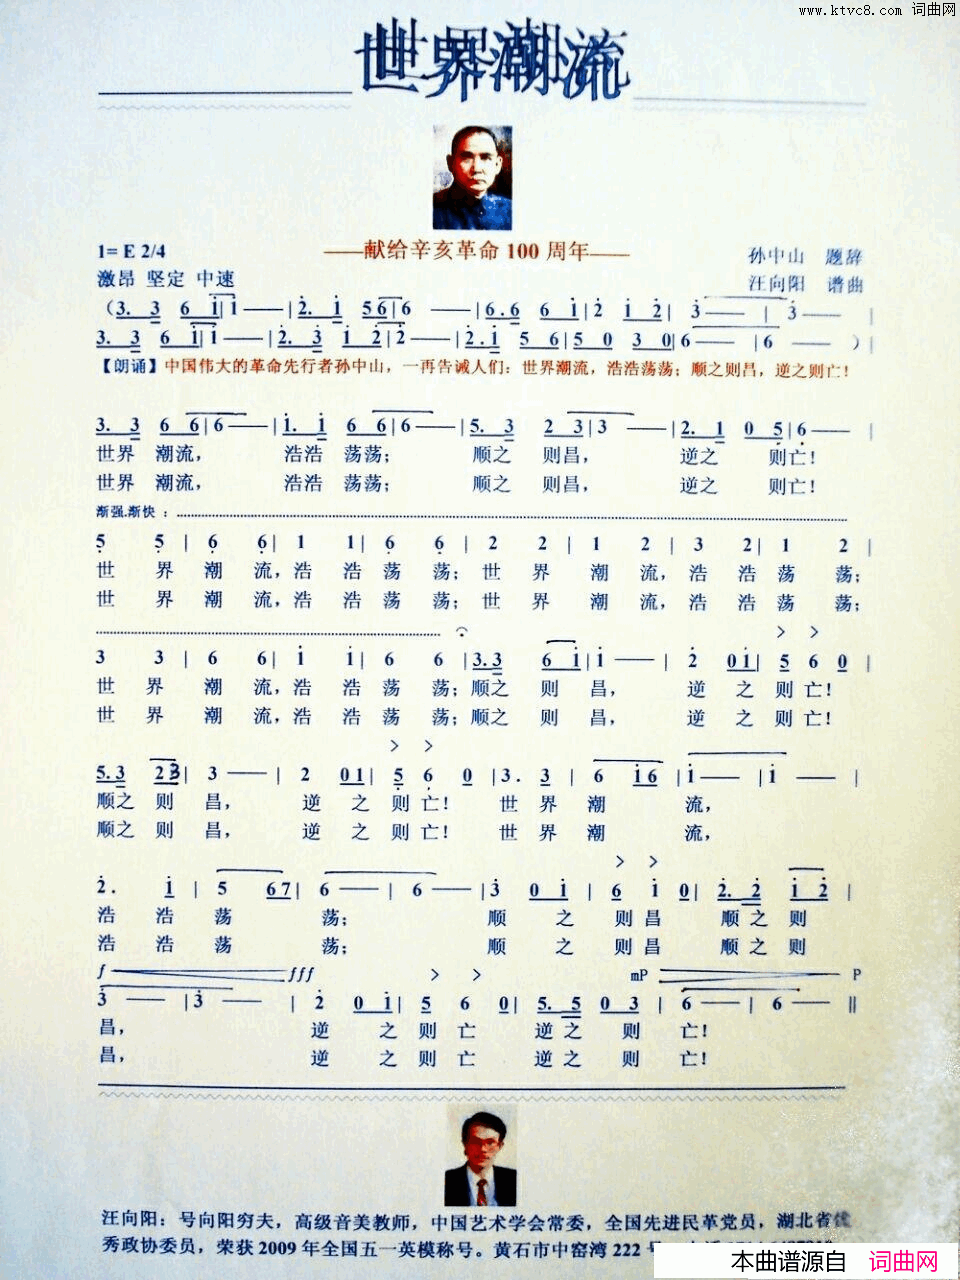 www.ktvc8.com 词曲网
世界潮流
1= E 2/4 ——献给辛亥革命 100 周年—— 孙中山 题辞
激昂 坚定 中速 汪向阳 谱曲
（3. 3 6 i| i —— | 2. i 5 6 | 6 —— | 6.6 6 i | 2 i 2 | 3 —— | 3 —— |
3. 3 6 i | i —— | 2. 3 i 2 | 2 —— | 2. i 5 6 | 5 0 3 0 | 6 —— | 6 —— ）|
【朗诵】中国伟大的革命先行者孙中山，一再告诫人们：世界潮流，浩浩荡荡；顺之则昌，逆之则亡！
3. 3 6 6 | 6 —— | i. i 6 6 | 6 —— | 5. 3 2 3 | 3 —— | 2. 1 0 5 | 6 —— |
世界 潮流， 浩浩 荡荡； 顺之 则昌， 逆之 则亡！
世界 潮流， 浩浩 荡荡； 顺之 则昌， 逆之 则亡！
渐强.渐快：
5 5 | 6 6 | 1 1 | 6 6 | 2 2 | 1 2 | 3 2 | 1 2 |
世 界 潮 流，浩 浩 荡 荡；世 界 潮 流，浩 浩 荡 荡；
世 界 潮 流，浩 浩 荡 荡；世 界 潮 流，浩 浩 荡 荡；
> >
3 3 | 6 6 | i i | 6 6 | 3.3 6 i | i —— | 2 0 i | 5 6 0 |
世 界 潮 流，浩 浩 荡 荡；顺之 则 昌， 逆 之 则 亡！
世 界 潮 流，浩 浩 荡 荡；顺之 则 昌， 逆 之 则 亡！
> >
5.3 2 3 | 3 —— | 2 0 1 | 5 6 0 | 3. 3 | 6 i 6 | i —— | i —— |
顺之 则 昌， 逆 之 则 亡！ 世 界 潮 流，
顺之 则 昌， 逆 之 则 亡！ 世 界 潮 流，
> >
2. i | 5 6 7 | 6 —— | 6 —— | 3 0 i | 6 i 0 | 2. 2 i 2 |
浩 浩 荡 荡； 顺 之 则昌 顺 之 则
浩 浩 荡 荡； 顺 之 则昌 顺 之 则
f fff > > mP P
3 —— | 3 —— | 2 0 i | 5 6 0 | 5. 5 0 3 | 6 —— | 6 —— ||
昌， 逆 之 则 亡 逆 之 则 亡！
昌， 逆 之 则 亡 逆 之 则 亡！
汪向阳：号向阳穷夫，高级音美教师，中国艺术学会常委，全国先进民革党员，湖北省优
秀政协委员，荣获 2009 年全国五一英模称号。黄石市中窑湾 222 号
本曲谱源自 词曲网